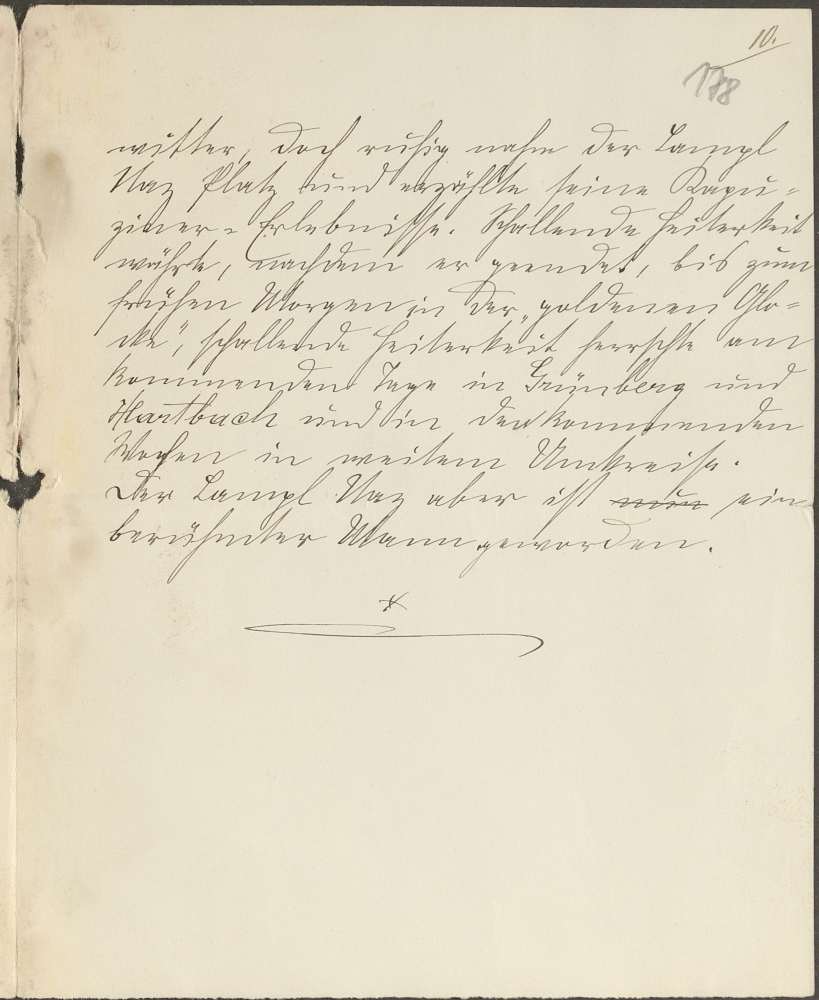 10.
178
witter, doch ruhig nahm der Lampl
Naz Platz und erzählte seine Kapu-
ziner-Erlebnisse. Schallende Heiterkeit
währte, nachdem er geendet, bis zum
frühen Morgen in der „goldenen Glo-
cke", schallende Heiterkeit herrschte am
kommenden Tage in Grünberg und
Hartbach und in den kommenden
Wochen in weitem Umkreise.
Der Lampl Naz aber ist nun ein
berühmter Mann geworden.